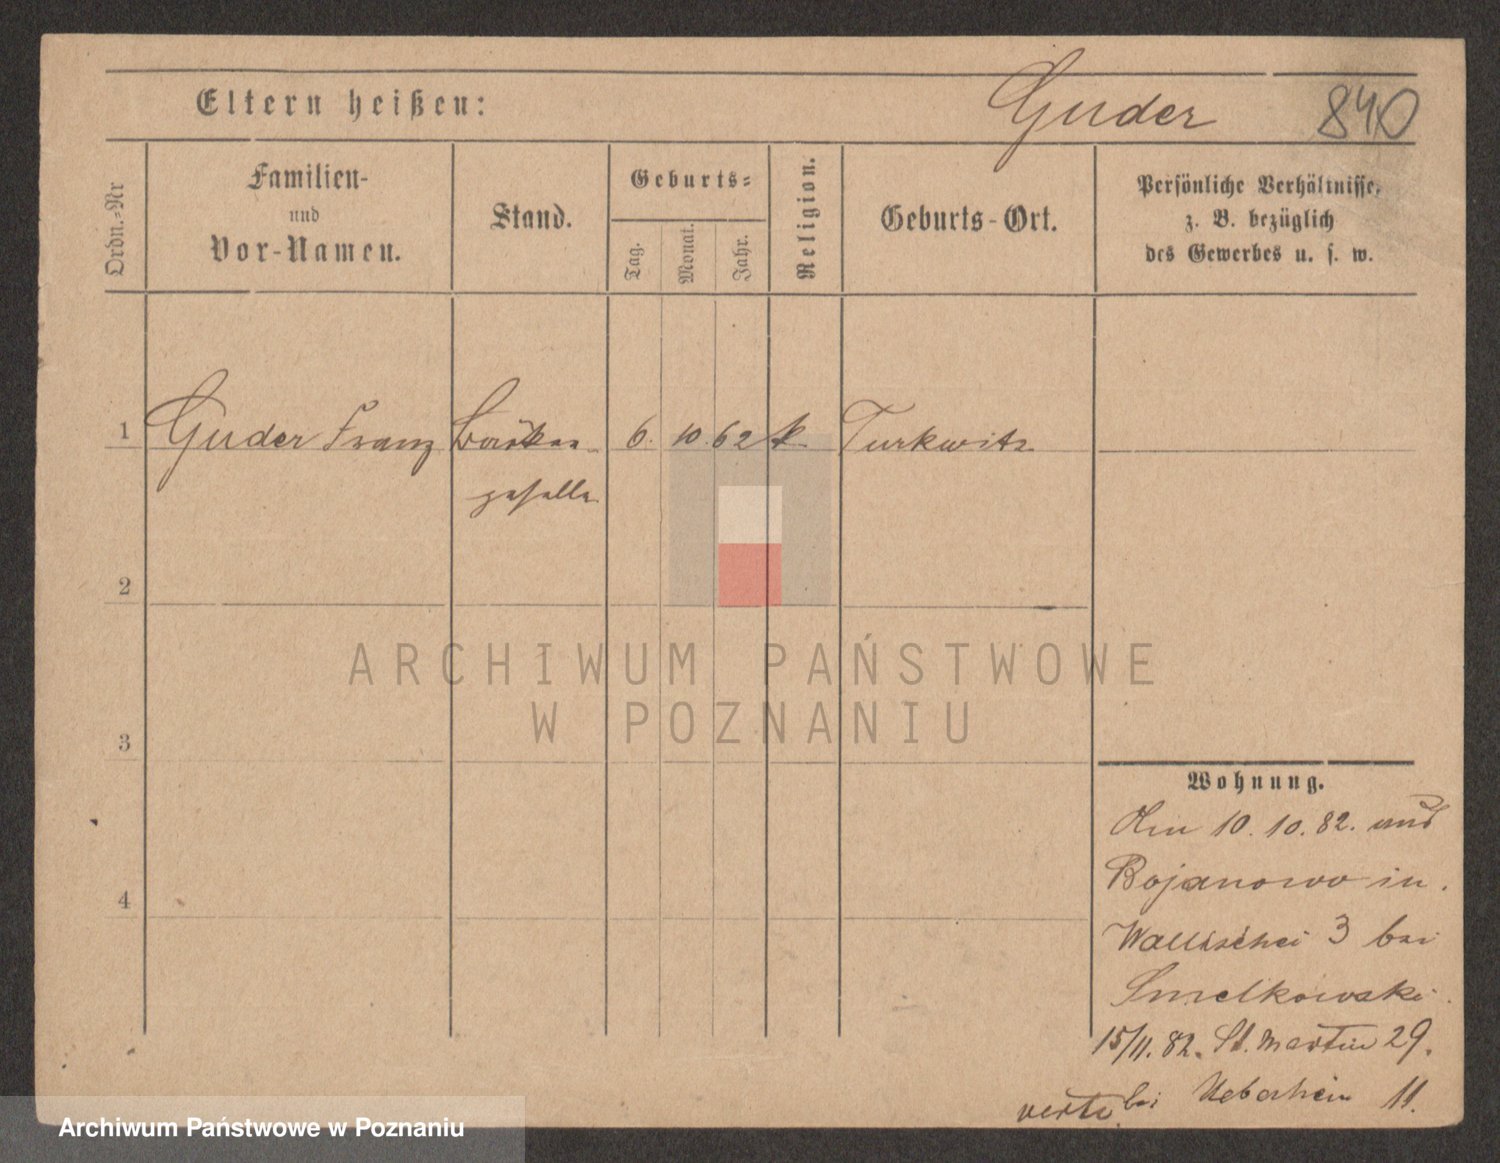 Eltern heißen: Guder 840
Ordn.-Nr
Familien-
und
Vor-Namen.
Stand.
Geburts-
Tag.
Monat.
Jahr.
Religion.
Geburts-Ort.
Persönliche Verhältnisse,
z. B. bezüglich
des Gewerbes u. s. w.
1 Guder Franz Bäcker- 6. 10. 62 k. Turkwitz
geselle
2
ARCHIWUM PAŃSTWOWE
W POZNANIU
3
Wohnung.
10. 10. 82.
4
Bojanowo in
Wallischei 3 bei
Smelkowski
15/11. 82. St. Martin 29.
bei 11.
verte.
Archiwum Państwowe w Poznaniu